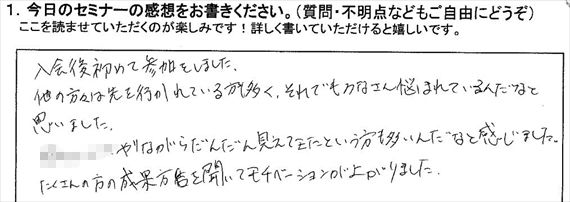 1. 今日のセミナーの感想をお書きください。（質問・不明点などもご自由にどうぞ）
ここを読ませていただくのが楽しみです！詳しく書いていただけると嬉しいです。
入会後初めて参加をしました。
他の方々は先を行かれている方が多く、それでもみなさん悩まれているんだなと
思いました。
やりながらだんだん見えてきたという方も多いんだなと感じました。
たくさんの方の成果方告を聞いてモチベーションが上がりました。